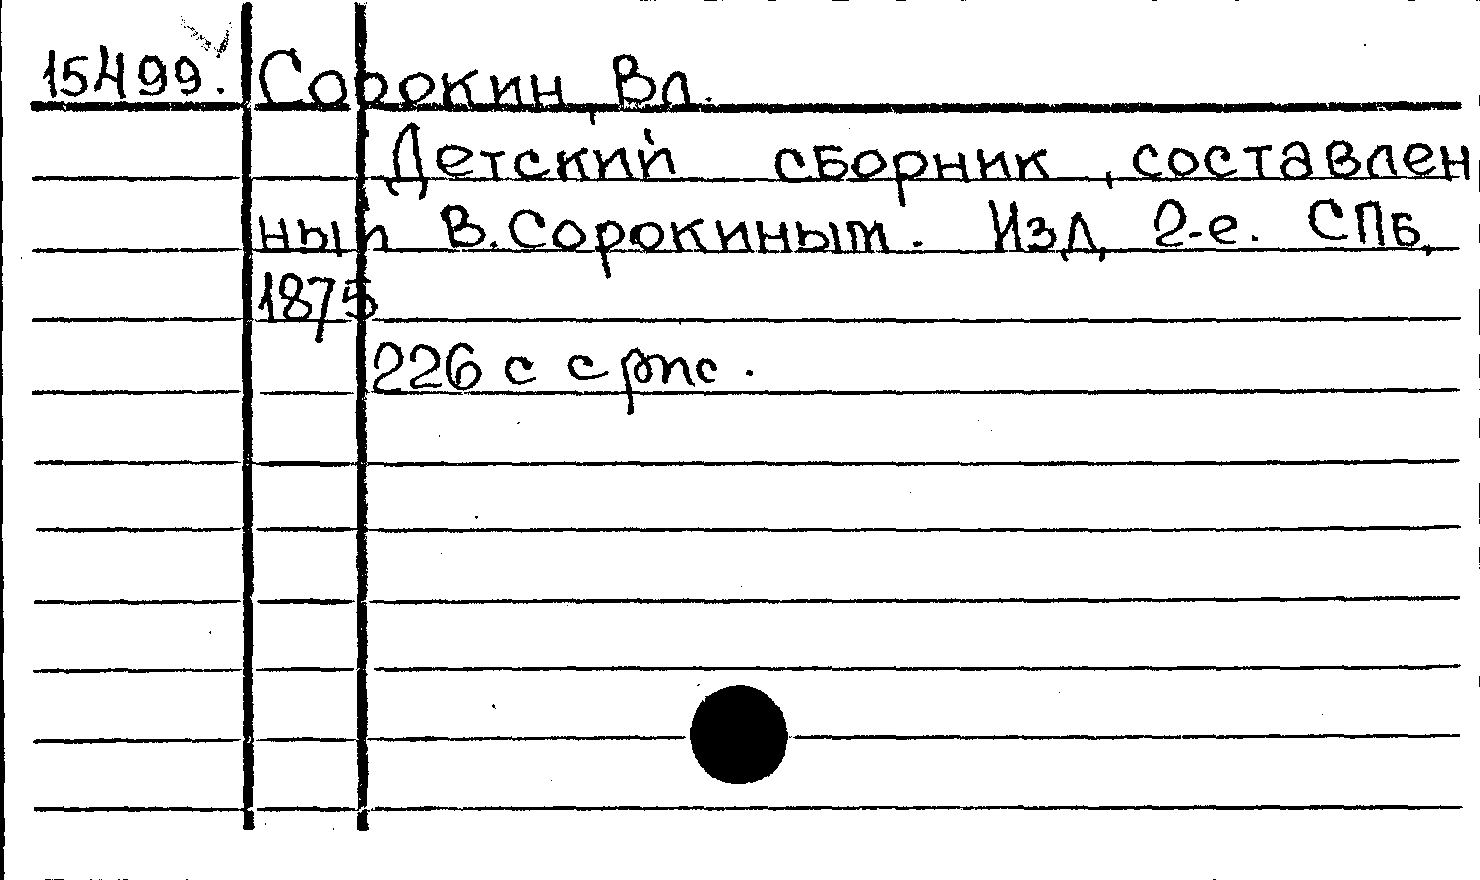 15499. Сорокин, Вл.
Детский сборник, составлен
ный В. Сорокиным. Изд. 2-е. СПб,
1875
226 с с рис.